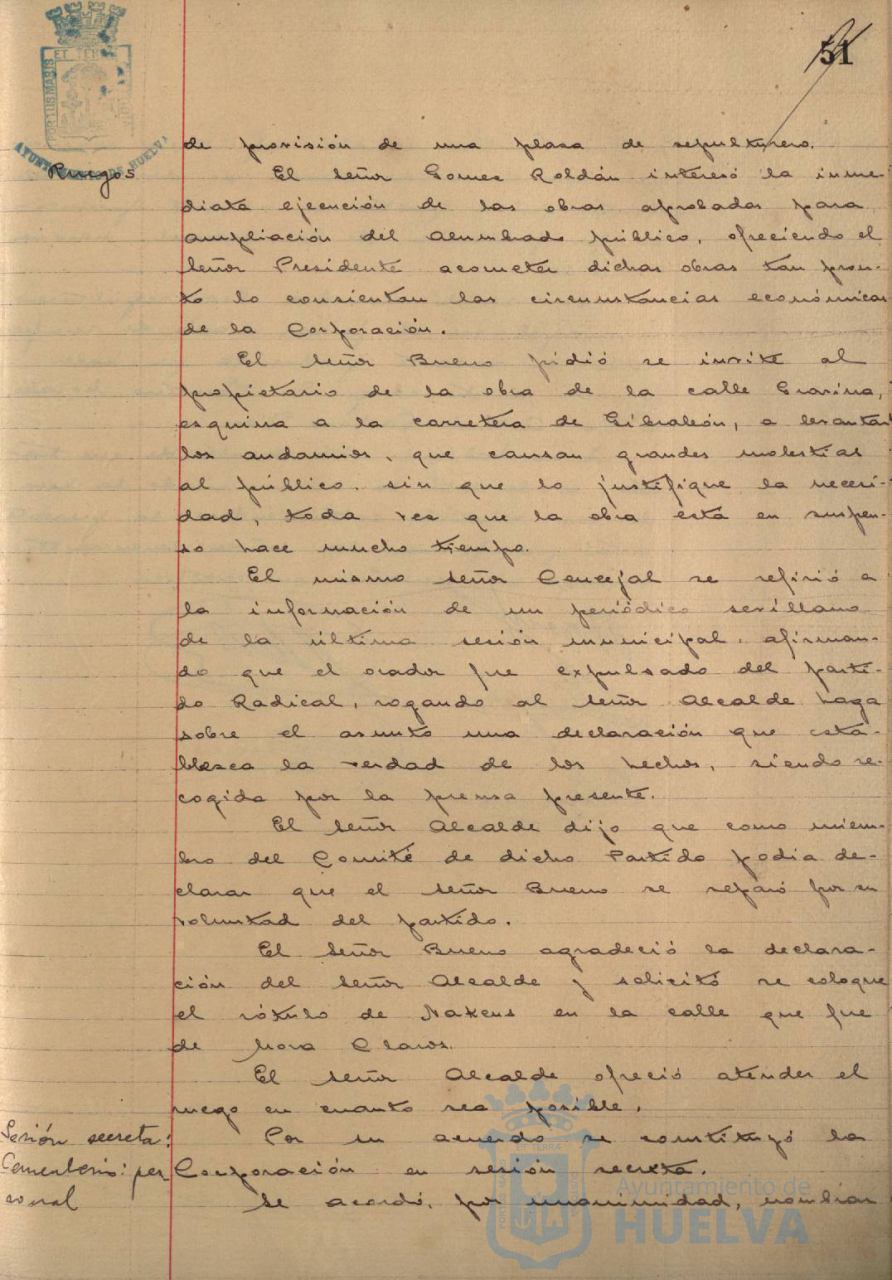 51
PORTUS MARIS ET TERRÆ
AYUNTAMIENTO DE HUELVA
de provisión de una plasa de sepulturero.
Ruegos
El señor Gomez Roldán interesó la inme-
diata ejecución de las obras aprobadas para
ampliación del alumbrado público, ofreciendo el
señor Presidente acometer dichas obras tan pron-
to lo consientan las circunstancias económicas
de la Corporación.
El señor Bueno pidió se invite al
propietario de la obra de la calle Gravina,
esquina a la carretera de Gibraleón, a levantar
los andamios, que causan grandes molestias
al público, sin que lo justifique la necesi-
dad, toda vez que la obra está en suspen-
so hace mucho tiempo.
El mismo señor Concejal se refirió a
la información de un periódico sevillano
de la última sesión municipal, afirman-
do que el orador fue expulsado del parti-
do Radical, rogando al señor Alcalde haga
sobre el asunto una declaración que esta-
blezca la verdad de los hechos, siendo re-
cogida por la prensa presente.
El señor Alcalde dijo que como miem-
bro del Comité de dicho Partido podia de-
clarar que el señor Bueno se separó por su
voluntad del partido.
El señor Bueno agradeció la declara-
ción del señor Alcalde y solicitó se coloque
el rótulo de Nakens en la calle que fue
de Mora Claros.
El señor Alcalde ofreció atender el
ruego en cuanto sea posible.
Sesión secreta:
Por su acuerdo se constituyó la
Cementerio: per
Corporación en sesión secreta.
sonal
Se acordó, por unanimidad, nombrar
Ayuntamiento de
HUELVA